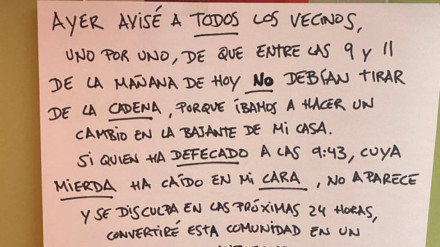 AYER AVISÉ A TODOS LOS VECINOS,
UNO POR UNO, DE QUE ENTRE LAS 9 y 11
DE LA MAÑANA DE HOY NO DEBÍAN TIRAR
DE LA CADENA, PORQUE ÍBAMOS A HACER UN
CAMBIO EN LA BAJANTE DE MI CASA.
SI QUIEN HA DEFECADO A LAS 9:43, CUYA
MIERDA HA CAÍDO EN MI CARA, NO APARECE
Y SE DISCULPA EN LAS PRÓXIMAS 24 HORAS,
CONVERTIRÉ ESTA COMUNIDAD EN UN